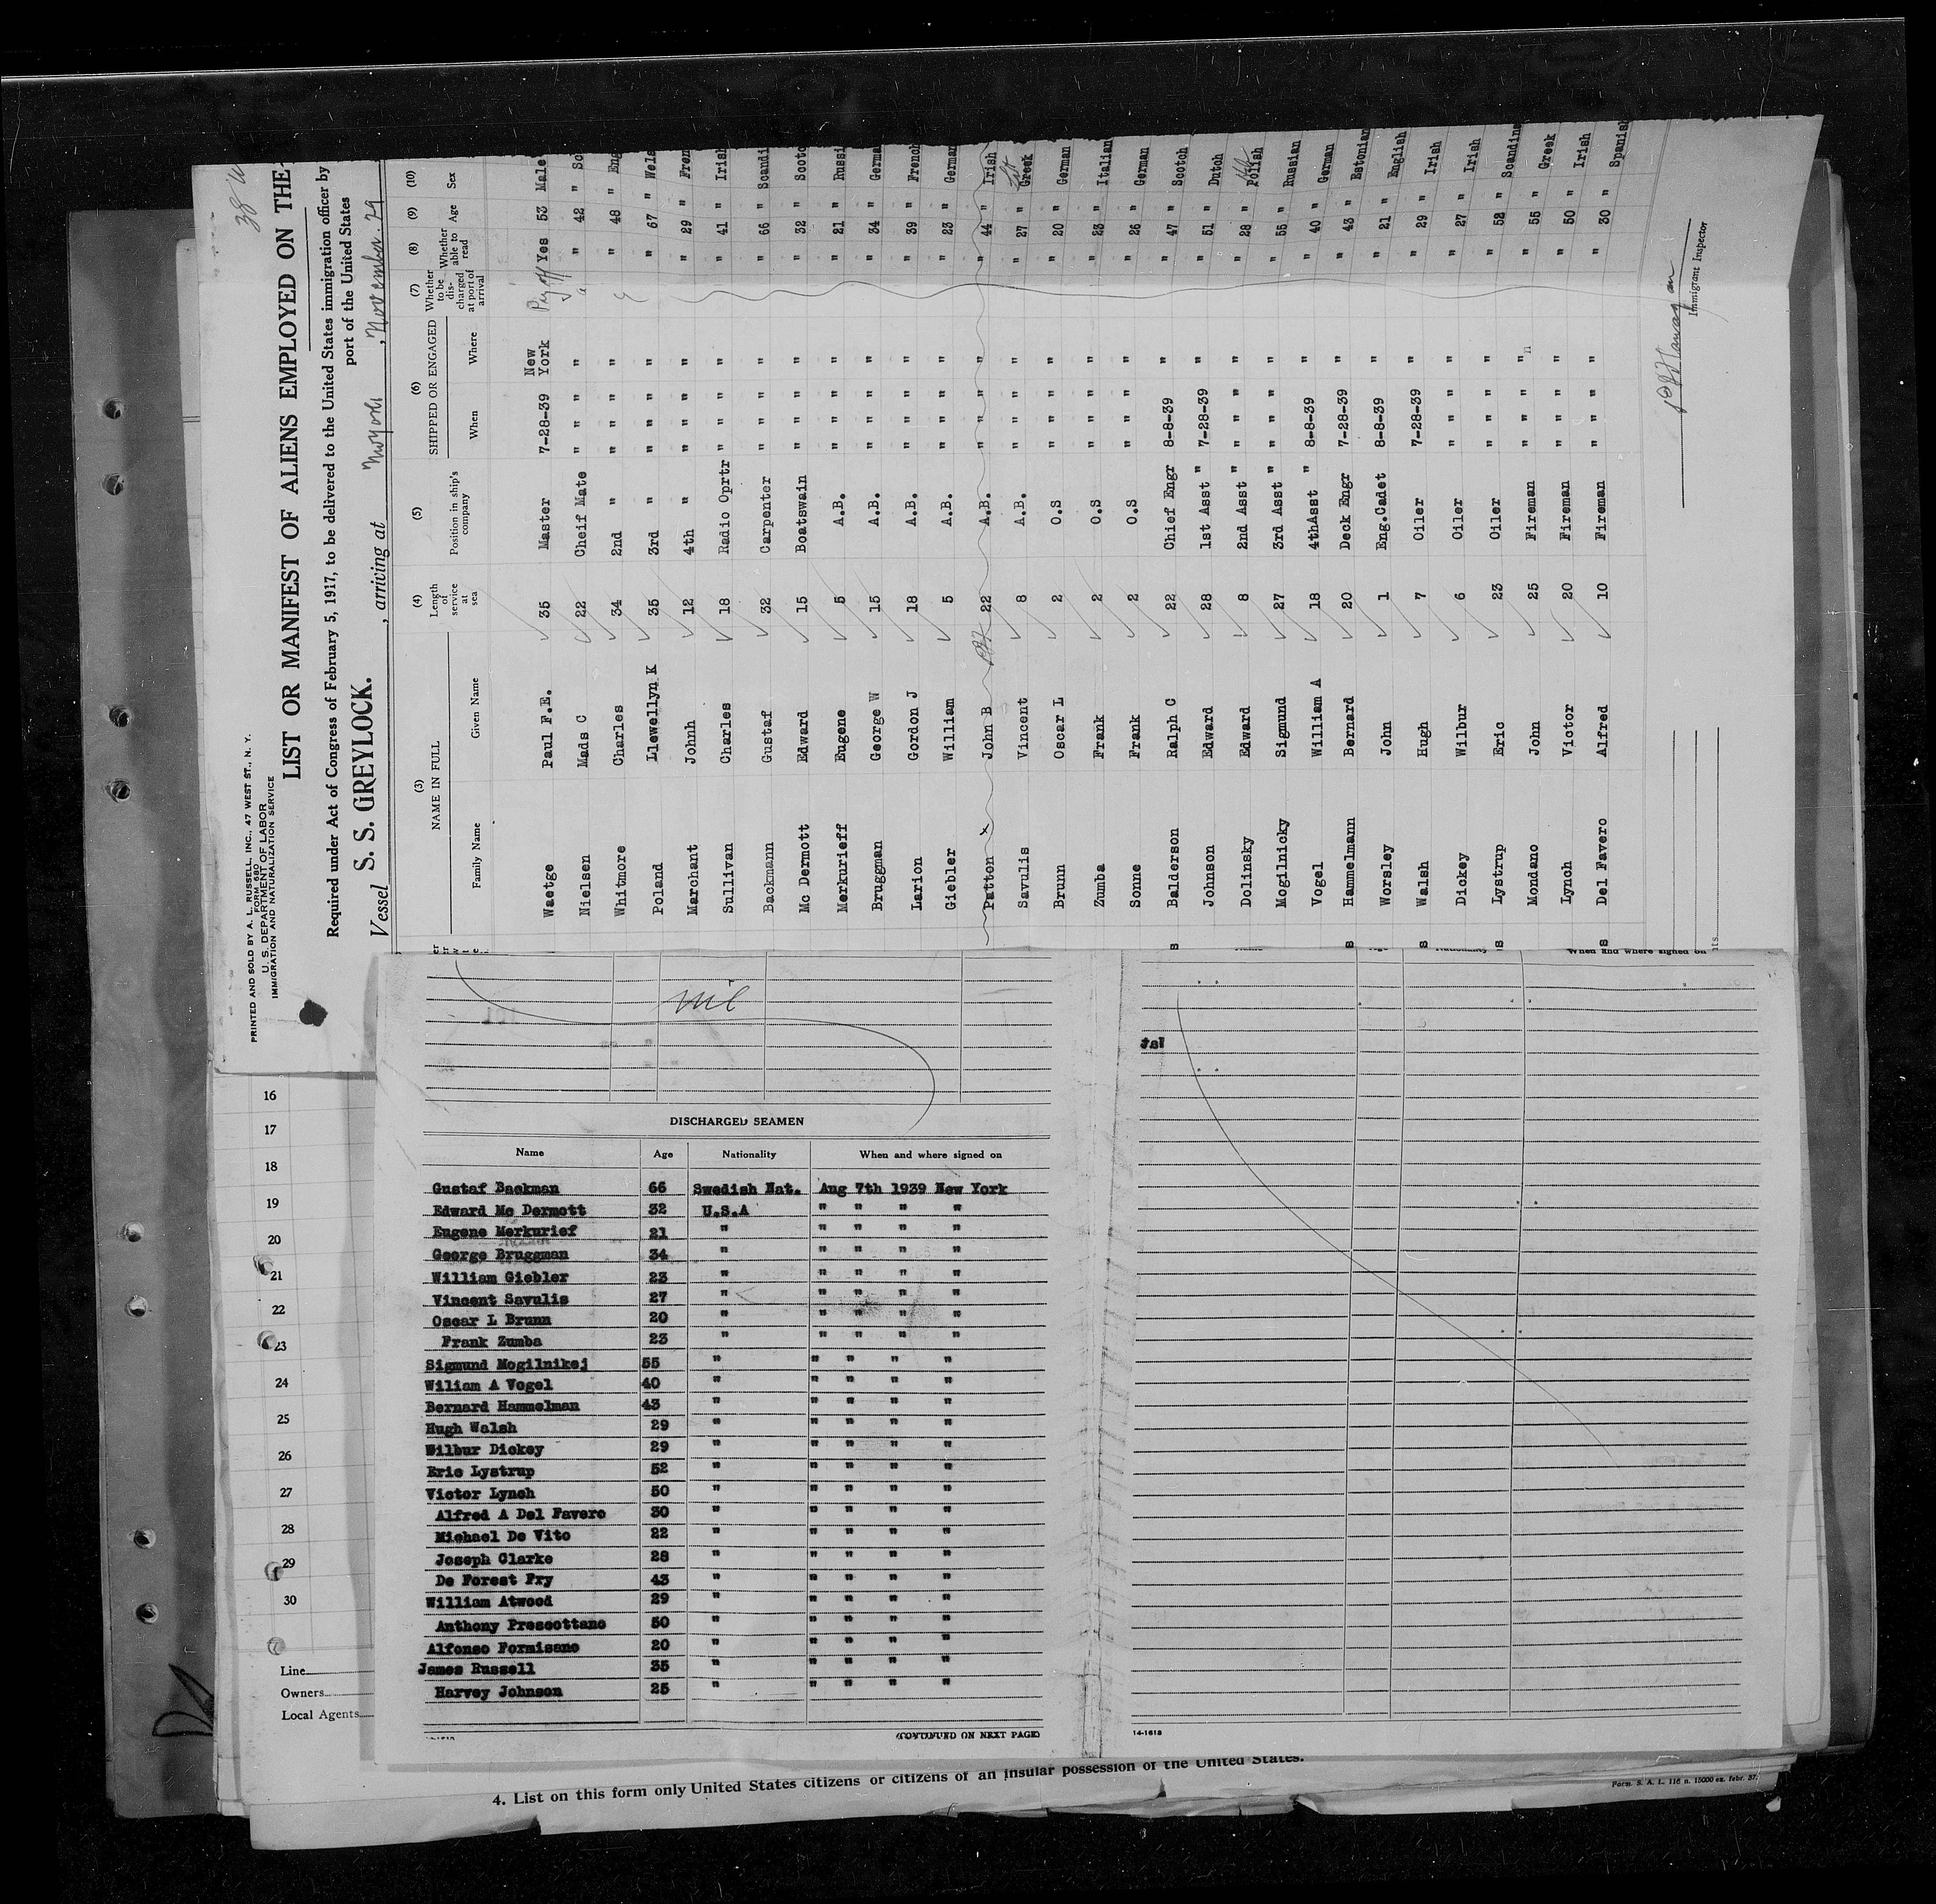 38
PRINTED AND SOLD BY A. L. RUSSELL, INC., 47 WEST ST., N. Y.
FORM 680
U. S. DEPARTMENT OF LABOR
IMMIGRATION AND NATURALIZATION SERVICE
LIST OR MANIFEST OF ALIENS EMPLOYED ON THE
Required under Act of Congress of February 5, 1917, to be delivered to the United States immigration officer by
port of the United States
Vessel S. S. GREYLOCK. , arriving at , November. 29
(3) (4) (5) (6) (7) (8) (9) (10)
NAME IN FULL Length of service at sea Position in ship's company SHIPPED OR ENGAGED Whether to be discharged at port of arrival Whether able to read Age Sex
Family Name Given Name When Where
Waetge Paul F.E. 35 Master 7-28-39 New York Pay off Yes 53 Male
Nielsen Mads C 22 Cheif Mate " " " " " 42 " Sc
Whitmore Charles 34 2nd " " " " " " 48 " Eng
Poland Llewellyn K 35 3rd " " " " " " 67 " Wels
Marchant Johnh 12 4th " " " " " " 29 " Fren
Sullivan Charles 18 Radio Oprtr " " " " " 41 " Irish
Backmann Gustaf 32 Carpenter " " " " " 66 " Scandi
Mc Dermott Edward 15 Boatswain " " " " " 32 " Scotc
Merkurieff Eugene 5 A.B. " " " " " 21 " Russi
Bruggman George W 15 A.B. " " " " " 34 " Germa
Larion Gordon J 18 A.B. " " " " " 39 " French
Giebler William 5 A.B. " " " " " 23 " German
Patton x John B 22 A.B. " " " " " 44 " Irish
Savulis Vincent 8 A.B. " " " " " 27 " Greek
Brunn Oscar L 2 O.S " " " " " 20 " German
Zumba Frank 2 O.S " " " " " 23 " Italian
Sonne Frank 2 O.S " " " " " 26 " German
s Balderson Ralph C 22 Chief Engr 8-8-39 " " 47 " Scotch
Johnson Edward 28 1st Asst " 7-28-39 " " 51 " Dutch
Dolinsky Edward 8 2nd Asst " " " " " " 28 " Polish
Mogilnicky Sigmund 27 3rd Asst " " " " " " 55 " Russian
Vogel William A 18 4thAsst " 8-8-39 " " 40 " German
s Hammelmann Bernard 20 Deck Engr 7-28-39 " " 43 " Estonian
Worsley John 1 Eng.Cadet 8-8-39 " " 21 " English
s Walsh Hugh 7 Oiler 7-28-39 " " 29 " Irish
Dickey Wilbur 6 Oiler " " " " " 27 " Irish
s Lystrup Eric 23 Oiler " " " " " 52 " Scandina
Mondano John 25 Fireman " " " " " 55 " Greek
Lynch Victor 20 Fireman " " " " " 50 " Irish
s Del Favero Alfred 10 Fireman " " " " " 30 " Spanish
Immigrant Inspector
When and where signed on
nil
DISCHARGED SEAMEN
Name Age Nationality When and where signed on
Gustaf Backman 66 Swedish Nat. Aug 7th 1939 New York
Edward Mc Dermott 32 U.S.A " " " "
Eugene Merkurief 21 " " " " "
George Bruggman 34 " " " " "
William Giebler 23 " " " " "
Vincent Savulis 27 " " " " "
Oscar L Brunn 20 " " " " "
Frank Zumba 23 " " " " "
Sigmund Mogilnikej 55 " " " " "
Wiliam A Vogel 40 " " " " "
Bernard Hammelman 43 " " " " "
Hugh Walsh 29 " " " " "
Wilbur Dickey 29 " " " " "
Eric Lystrup 52 " " " " "
Victor Lynch 50 " " " " "
Alfred A Del Favero 30 " " " " "
Michael De Vito 22 " " " " "
Joseph Clarke 28 " " " " "
De Forest Fry 43 " " " " "
William Atwood 29 " " " " "
Anthony Prescottano 50 " " " " "
Alfonso Formisano 20 " " " " "
James Russell 35 " " " " "
Harvey Johnson 25 " " " " "
(CONTINUED ON NEXT PAGE)
14-1613
16
17
18
19
20
21
22
23
24
25
26
27
28
29
30
Line
Owners
Local Agents
4. List on this form only United States citizens or citizens of an insular possession of the United States.
Form. S. A. L. 116 n. 15000 ex. febr. 37.